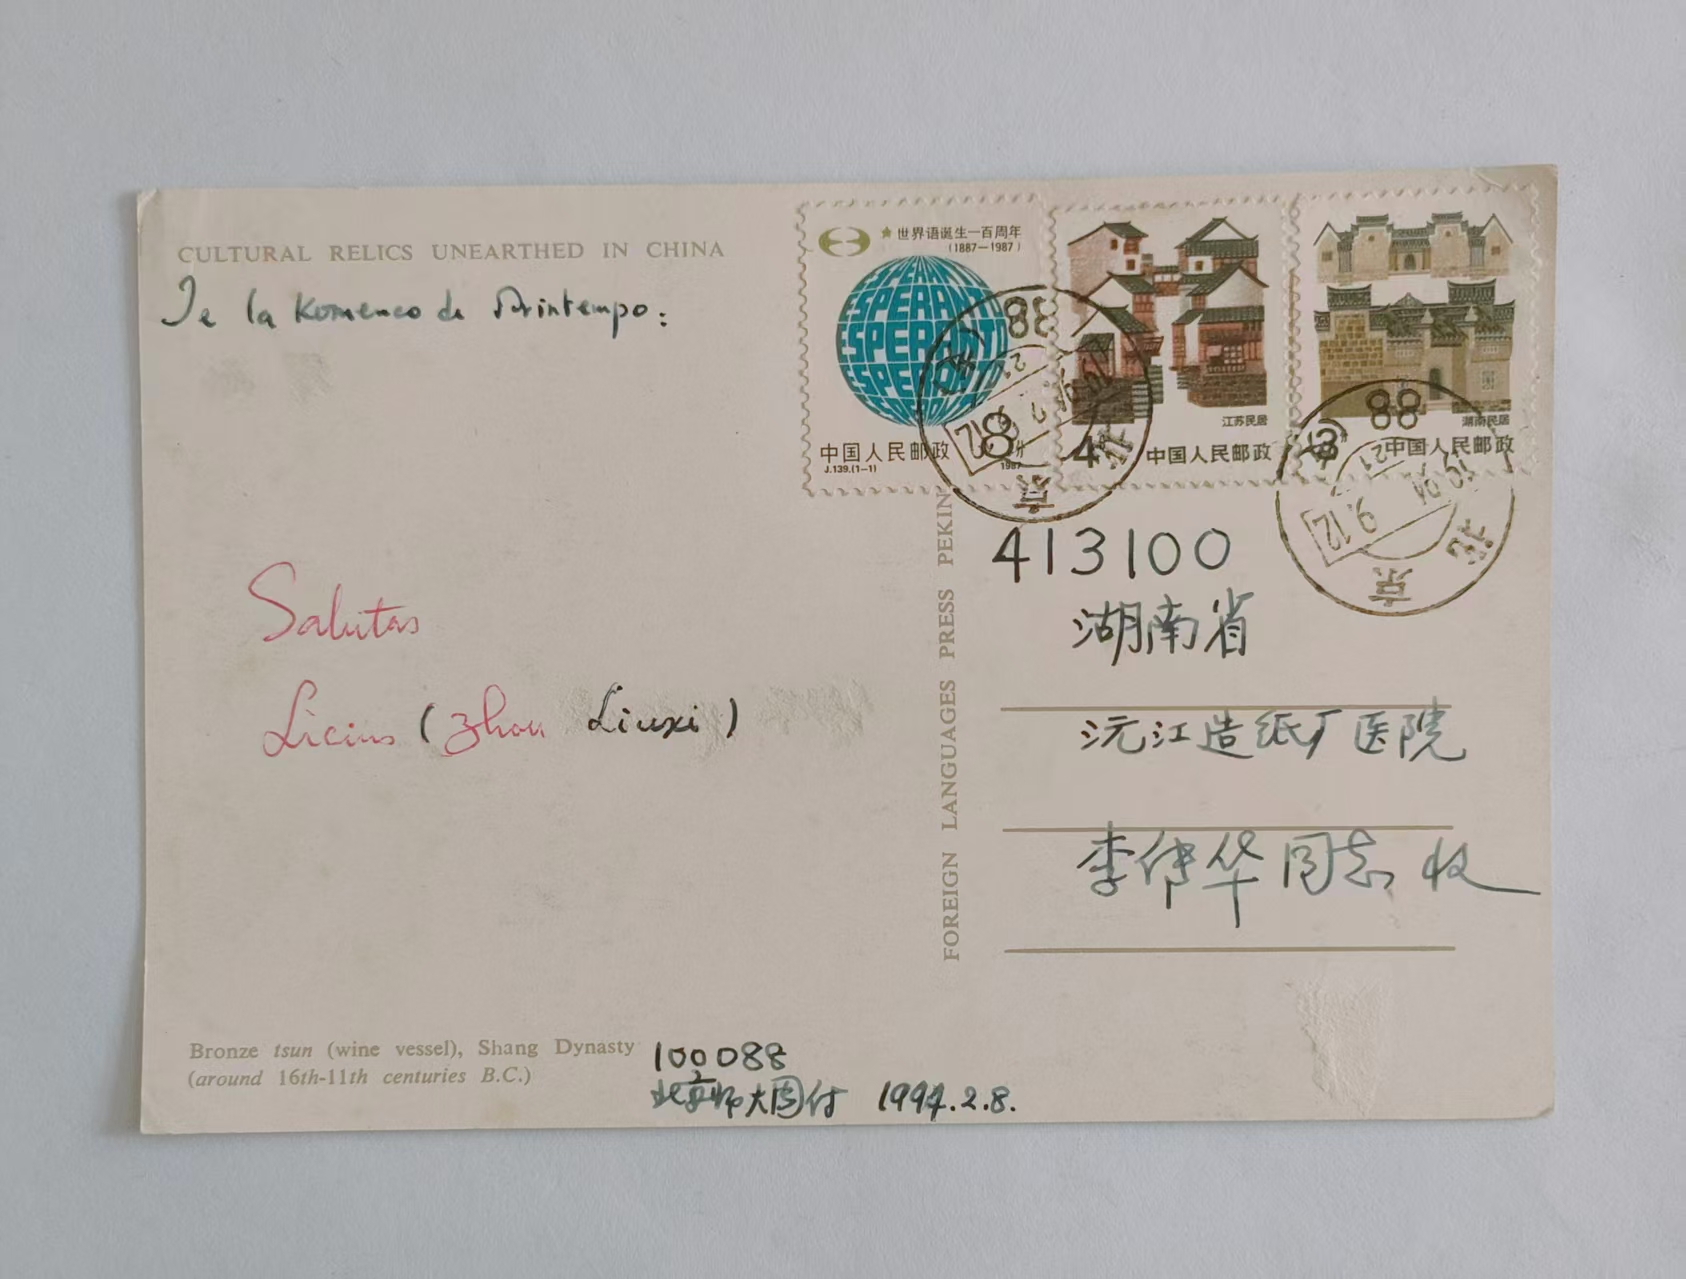 CULTURAL RELICS UNEARTHED IN CHINA
Je la Komenco de Printempo:
Salutas
Licius (Zhou Liuxi)
Bronze tsun (wine vessel), Shang Dynasty
(around 16th-11th centuries B.C.)
100088
北京师大图付 1994.2.8.
FOREIGN LANGUAGES PRESS PEKIN
世界语诞生一百周年
(1887—1987)
ESPERANT
ESPERANT
ESPERANTO
中国人民邮政 8分
J.139.(1-1) 1987
江苏民居
4 中国人民邮政
湖南民居
中国人民邮政
北京
88
北京
413100
湖南省
沅江造纸厂医院
李伟华同志收